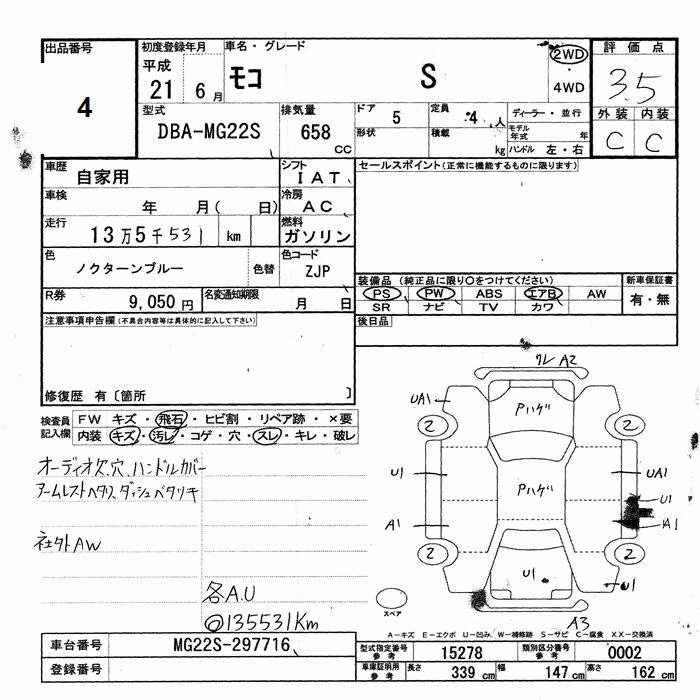 出品番号 初度登録年月 車名・グレード 2WD 評価点
平成
4 21 6月 モコ S ・4WD 3.5
型式 排気量 ドア 5 定員 4人 ディーラー・並行 外装 内装
DBA-MG22S 658 CC 形状 積載 kg モデル年式 年 C C
ハンドル 左・右
車歴 自家用 シフト IAT セールスポイント(正常に機能するものに限ります)
車検 年 月( 日) 冷房 AC
走行 13万5千531 km 燃料 ガソリン
色 ノクターンブルー 色替 色コード ZJP
装備品 (純正品に限り○をつけてください) 新車保証書
R券 9,050円 名変通知期限 月 日 PS PW ABS エアB AW 有・無
SR ナビ TV カワ
注意事項申告欄(不具合内容等は具体的に記入して下さい) 後日品
修復歴 有〔箇所 〕
検査員記入欄 FW キズ・飛石・ヒビ割・リペア跡・×要
内装 キズ・汚レ・コゲ・穴・スレ・キレ・破レ
オーディオ欠、穴、ハンドルカバー
アームレストベタツ、ダッシュベタツキ
社外AW
各A.U
◎135531Km
クレ A2
UA1 Pハゲ
2 2
U1 UA1
Pハゲ U1
A1 A1
2 2
U1 U1
スペア A3
A-キズ E-エクボ U-凹み W-補修跡 S-サビ C-腐食 XX-交換済
車台番号 MG22S-297716 型式指定番号 参考 15278 類別区分番号 参考 0002
登録番号 車庫証明用 参考 長さ 339 cm 幅 147 cm 高さ 162 cm